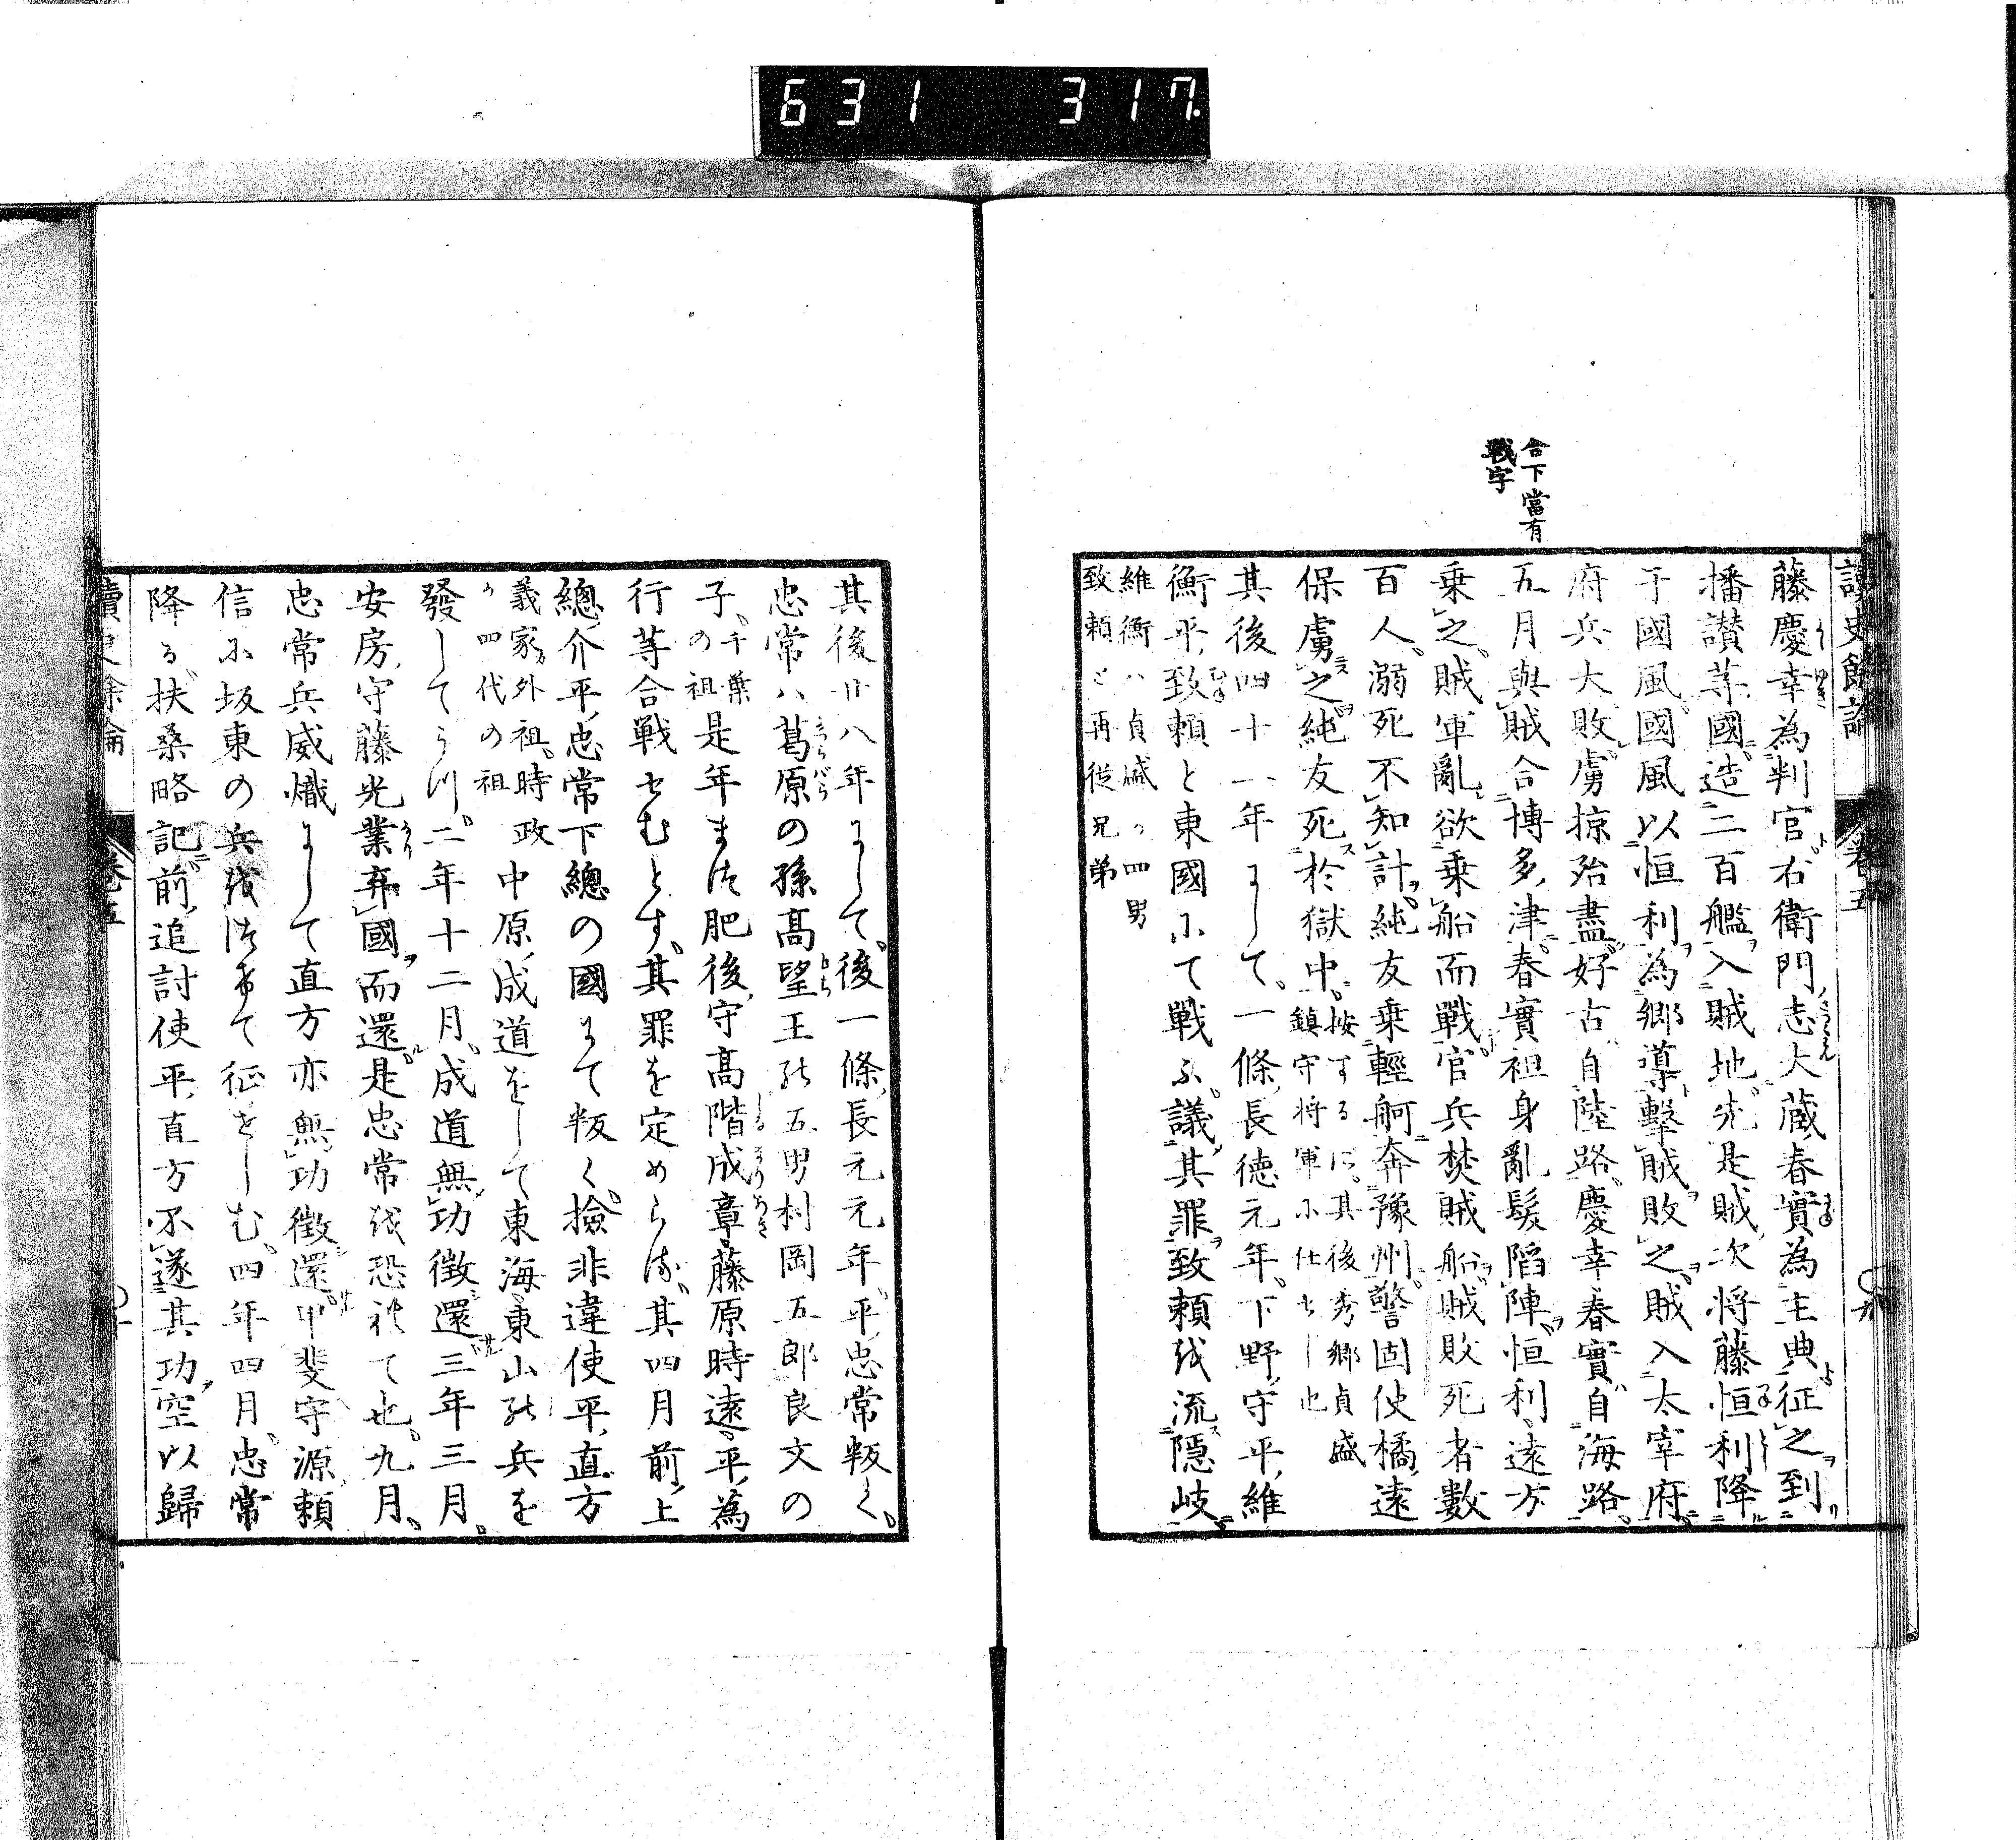 631 317
合下當有
戰字
讀史餘論 卷五 九
藤慶幸為判官右衛門志大蔵春實為主典征之到
播讃等國造二百艦入賊地先是賊次将藤恒利降
于國風國風以恒利為郷導擊賊敗之賊入太宰府
府兵大敗虜掠殆盡好古自陸路慶幸春實自海路
五月與賊合博多津春實袒身亂髮陷陣恒利遠方
乗之賊軍亂欲乗船而戰官兵焚賊船賊敗死者數
百人溺死不知計純友乗輕舸奔豫州警固使橘遠
保虜之純友死於獄中 按するに其後秀郷貞盛
鎮守将軍に仕せし也
其後四十一年にして一條長徳元年下野守平維
衡平致頼と東國にて戰ふ議其罪致頼を流隠岐
維衡ハ貞盛ヵ四男
致頼と再従兄弟
其後卅八年にして後一條長元元年平忠常叛く
忠常ハ葛原の孫高望王の五男村岡五郎良文の
子 千葉
の祖 是年また肥後守高階成章藤原時遠平為
行等合戦せむとす其罪を定めらる其四月前上
總介平忠常下總の國にて叛く撿非違使平直方
義家外祖時政
ヵ四代の祖 中原成道をして東海東山の兵を
發してうつ二年十二月成道無功徴還三年三月
安房守藤光業弃國而還是忠常を恐れて也九月
忠常兵威熾にして直方亦無功徴還甲斐守源頼
信に坂東の兵をつけて征せしむ四年四月忠常
降る扶桑略記前追討使平直方不遂其功空以歸
讀史餘論 卷五